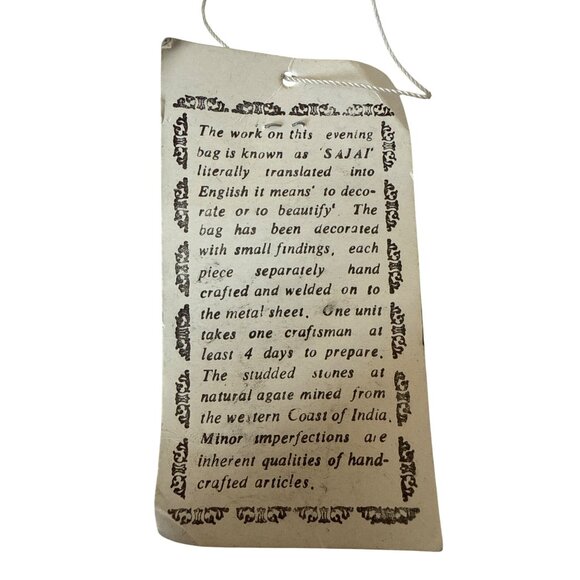 The work on this evening
bag is known as 'SAJAI'
literally translated into
English it means' to deco-
rate or to beautify' The
bag has been decorated
with small findings, each
piece separately hand
crafted and welded on to
the metal sheet. One unit
takes one craftsman at
least 4 days to prepare.
The studded stones at
natural agate mined from
the western Coast of India.
Minor imperfections are
inherent qualities of hand-
crafted articles.